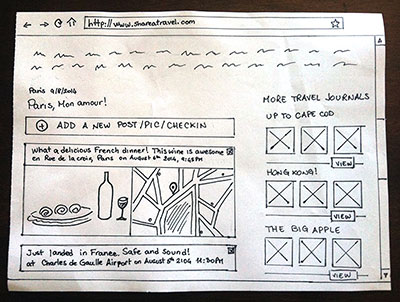 http://www.shareatravel.com
Paris 9/8/2014
Paris, Mon amour!
ADD A NEW POST/PIC/CHECKIN
What a delicious French dinner! This wine is awesome
en Rue de la croix, Paris on August 8th 2014, 9:48PM
Just landed in France. Safe and sound!
at Charles de Gaulle Airport on August 8th 2104 11:30PM
MORE TRAVEL JOURNALS
UP TO CAPE COD
VIEW
HONG KONG!
VIEW
THE BIG APPLE
VIEW